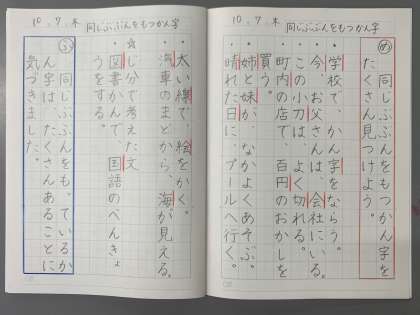 10.7.木 同じぶぶんをもつかん字
め 同じぶぶんをもつかん字を
たくさん見つけよう。
・学校で、かん字をならう。
・今、お父さんは、会社にいる。
・この小刀は、よく切れる。
・町内の店で、百円のおかしを
買う。
・姉と妹が、なかよくあそぶ。
・晴れた日に、プールへ行く。
10.7.木 同じぶぶんをもつかん字
・太い線で、絵をかく。
・汽車のまどから、海が見える。
☆じ分で考えた文
・図書かんで、国語のべんきょ
うをする。
ふ 同じぶぶんをもっているか
ん字は、たくさんあることに
気づきました。